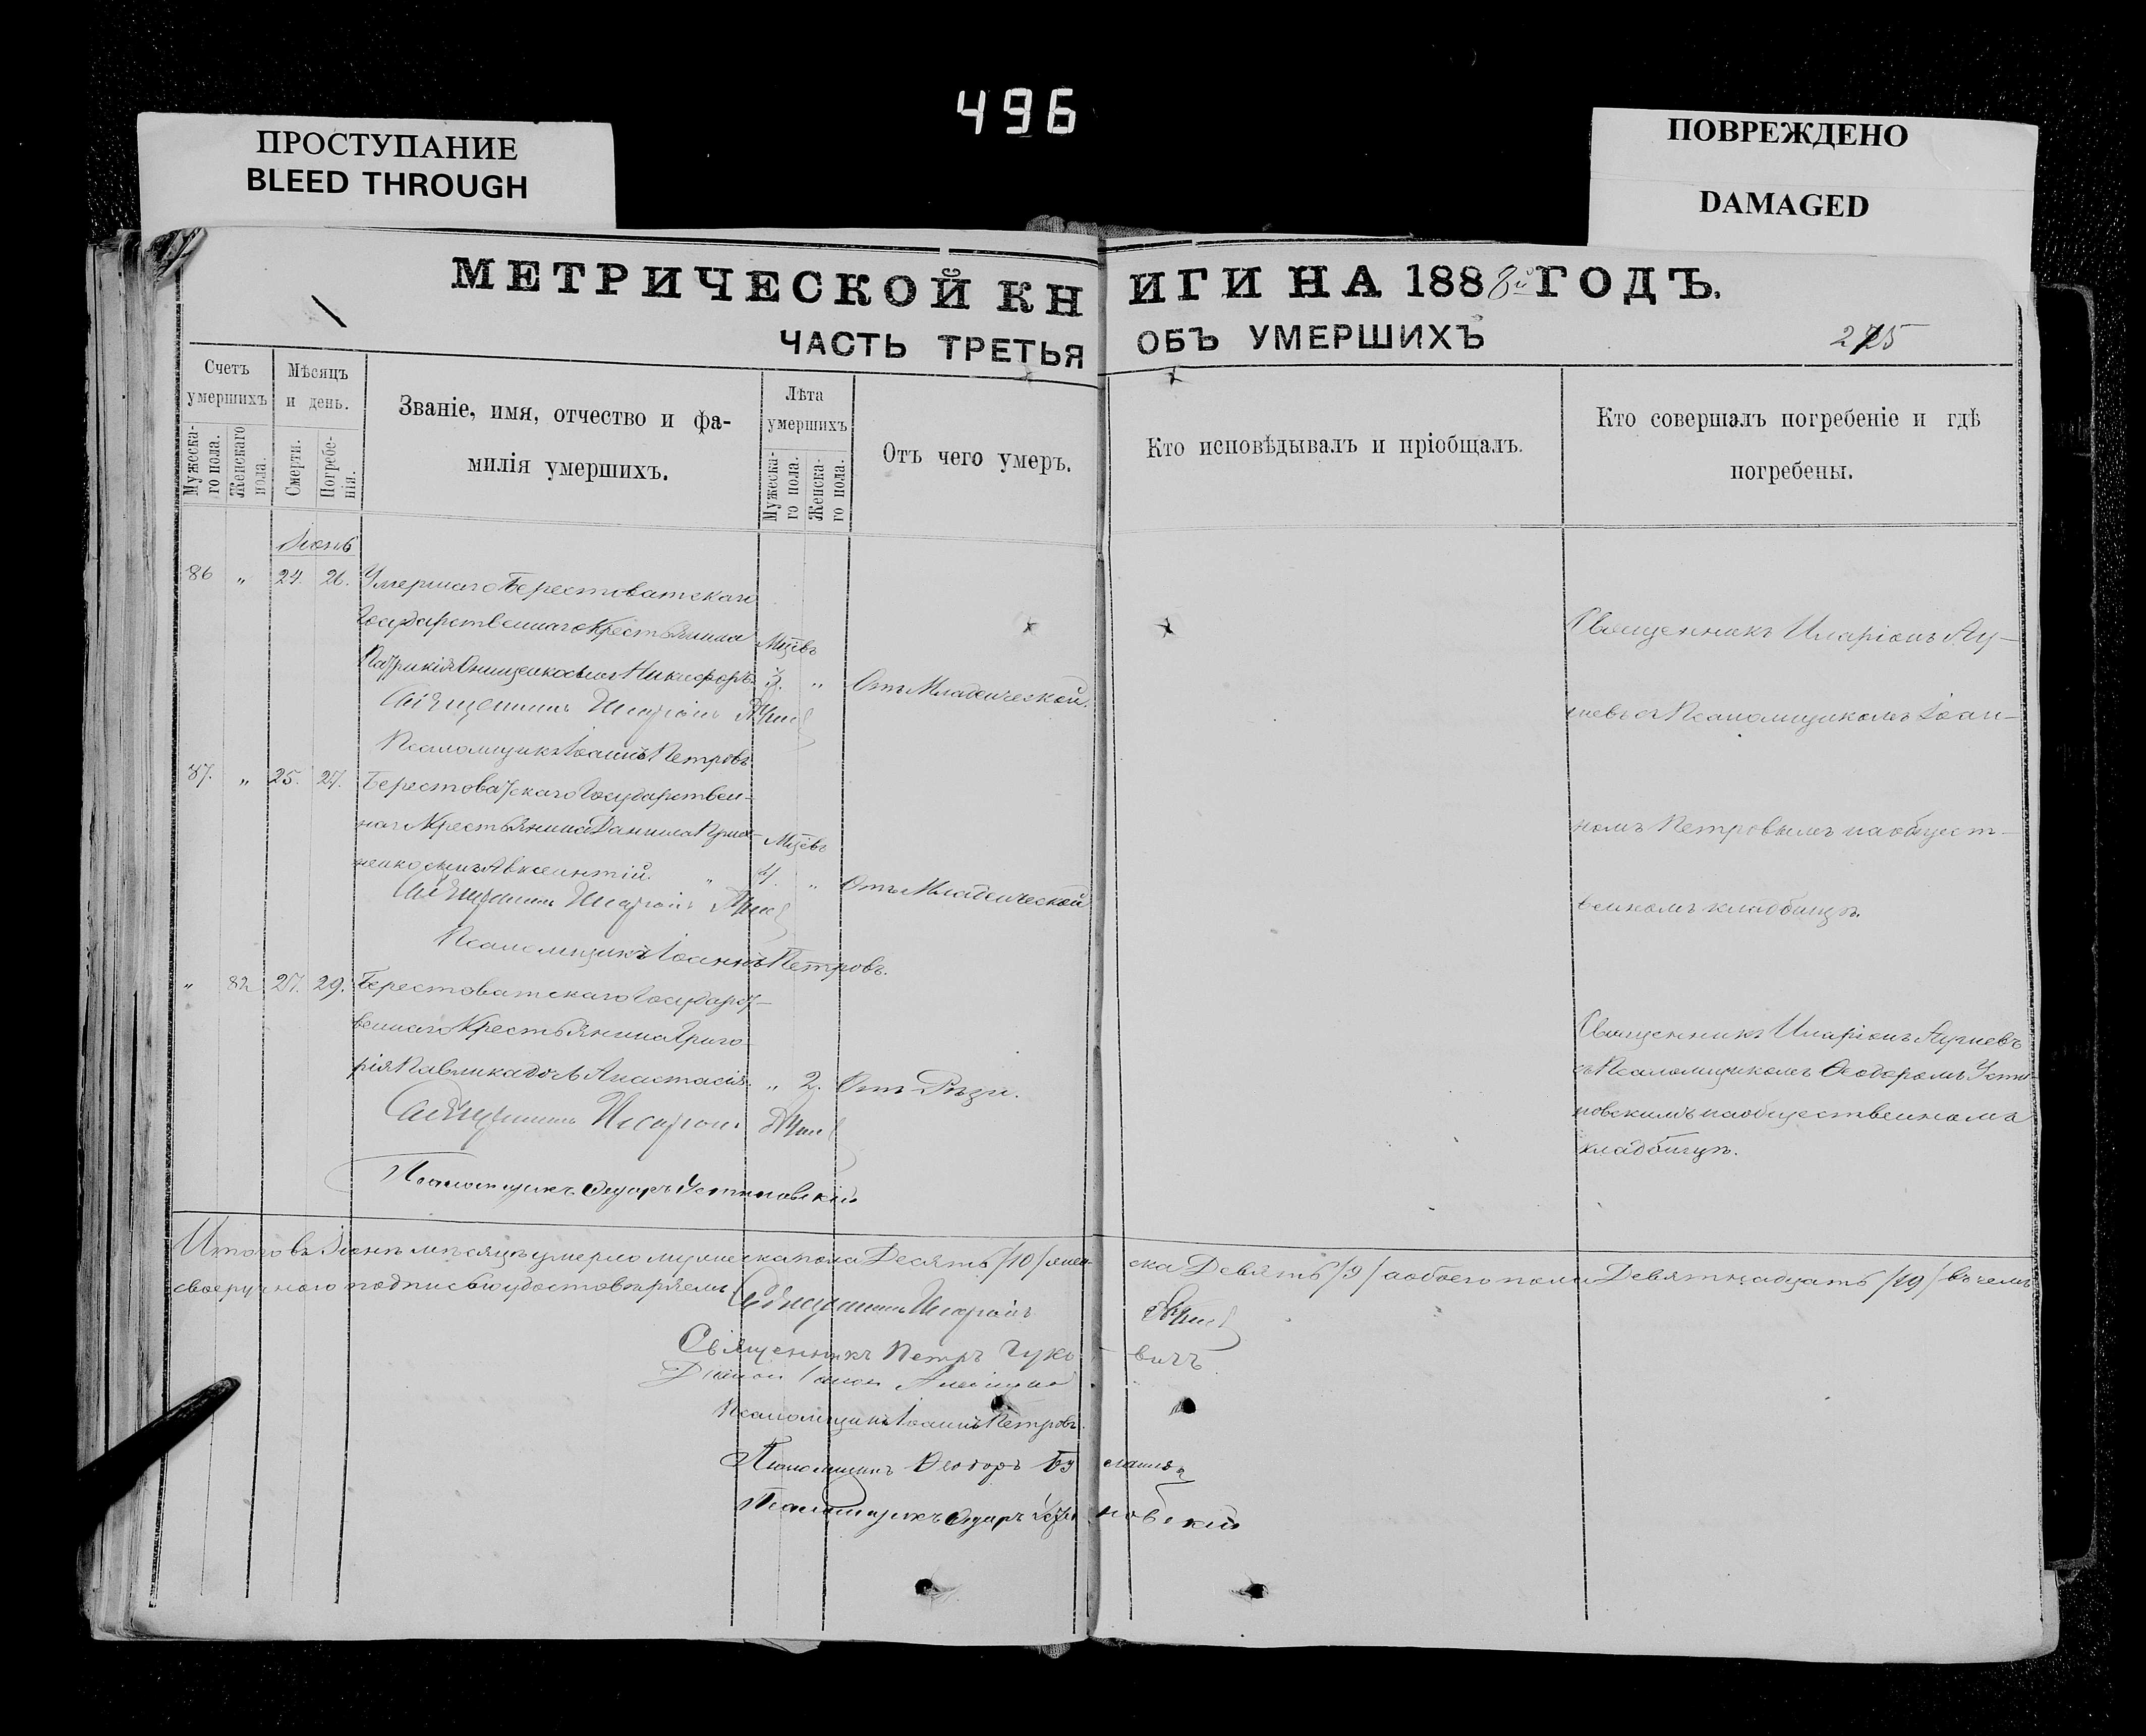 496
ПРОСТУПАНИЕ
BLEED THROUGH
ПОВРЕЖДЕНО
DAMAGED
МЕТРИЧЕСКОЙ КНИГИ НА 1888й ГОДЪ.
ЧАСТЬ ТРЕТЬЯ ОБЪ УМЕРШИХЪ
275
Счетъ умершихъ
Мужеска-го пола.
Женскаго пола.
Мѣсяцъ и день.
Смерти.
Погребе-нія.
Званіе, имя, отчество и фа-
милія умершихъ.
Лѣта умершихъ
Мужеска-го пола.
Женска-го пола.
Отъ чего умеръ.
Кто исповѣдывалъ и пріобщалъ.
Кто совершалъ погребеніе и гдѣ
погребены.
Іюнь
86 „ 24. 26. Умершаго Берестоватскаго
Государственнаго Крестьянина Мцѣвъ
Патрикія Онищенко сынъ Никифоръ. 3. „ Отъ Младенческой.
Священникъ Иларіонъ
Псаломщикъ Іоаннъ Петровъ
Священникъ Иларіонъ
съ Псаломщикомъ Іоан-
номъ Петровымъ на общест-
венномъ кладбищѣ.
87. „ 25. 27. Берестоватскаго Государствен-
наго Крестьянина Данила Мцѣвъ
сынъ Авксентій. „ 4. „ Отъ Младенческой
Священникъ Иларіонъ
Псаломщикъ Іоаннъ Петровъ.
„ 82 27. 29. Берестоватскаго Государст-
веннаго Крестьянина Григо-
рія Павлика дочь Анастасія. „ 2. Отъ Рѣзи.
Священникъ Иларіонъ
Псаломщикъ Ѳедоръ Устиновскій
Священникъ Иларіонъ
съ Псаломщикомъ Ѳеодоромъ Усти-
новскимъ на общественномъ
кладбищѣ.
Итого въ Іюнѣ мѣсяцѣ умерло мужеска пола Десять /10/ женска Девять /9/ а обоего пола Девятнадцать /19/ въ чемъ
своеручною подписью удостовѣряемъ Священникъ Иларіонъ
Священникъ Петръ
Псаломщикъ Іоаннъ Петровъ.
Псаломщикъ Ѳеодоръ
Псаломщикъ Ѳедоръ Устиновскій